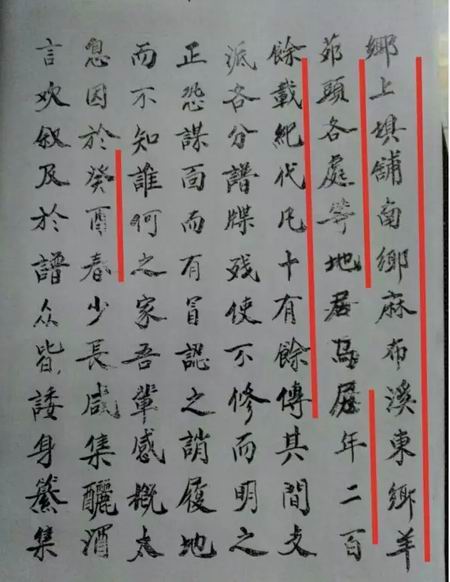 鄉上填舖南鄉麻布溪東鄉羊
茆頭各處等地居焉歷年二百
餘載紀代凡十有餘傳其間支
派各分譜牒残使不修而明之
正恐謀面而有冒認之誚履地
而不知誰何之家吾軰感慨太
息因於癸酉春少長咸集釃酒
言欢叙及於譜众皆諉身纂集